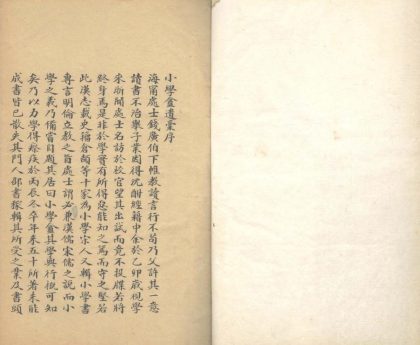 小學盦遺稾序
海甯處士錢廣伯下帷教讀言行不茍乃父許其一意
讀書不治舉子業因得沈酣經籍中余於乙卯歲視學
來浙聞處士名訪於校官望其出試而竟不投牒若將
終身焉是非於學實有所得烏能知之篤而守之堅若
此漢志載史籀倉頡等十家為小學宋人又輯小學書
專言明倫立教之旨處士謂必兼漢儒宋儒之說而小
學之義乃備嘗自顏其居曰小學盦其學與行槪可知
矣乃以力學得瘵疾於丙辰冬卒年未五十所著未能
成書皆已散失其門人邵書稼輯其所受之業及書頭